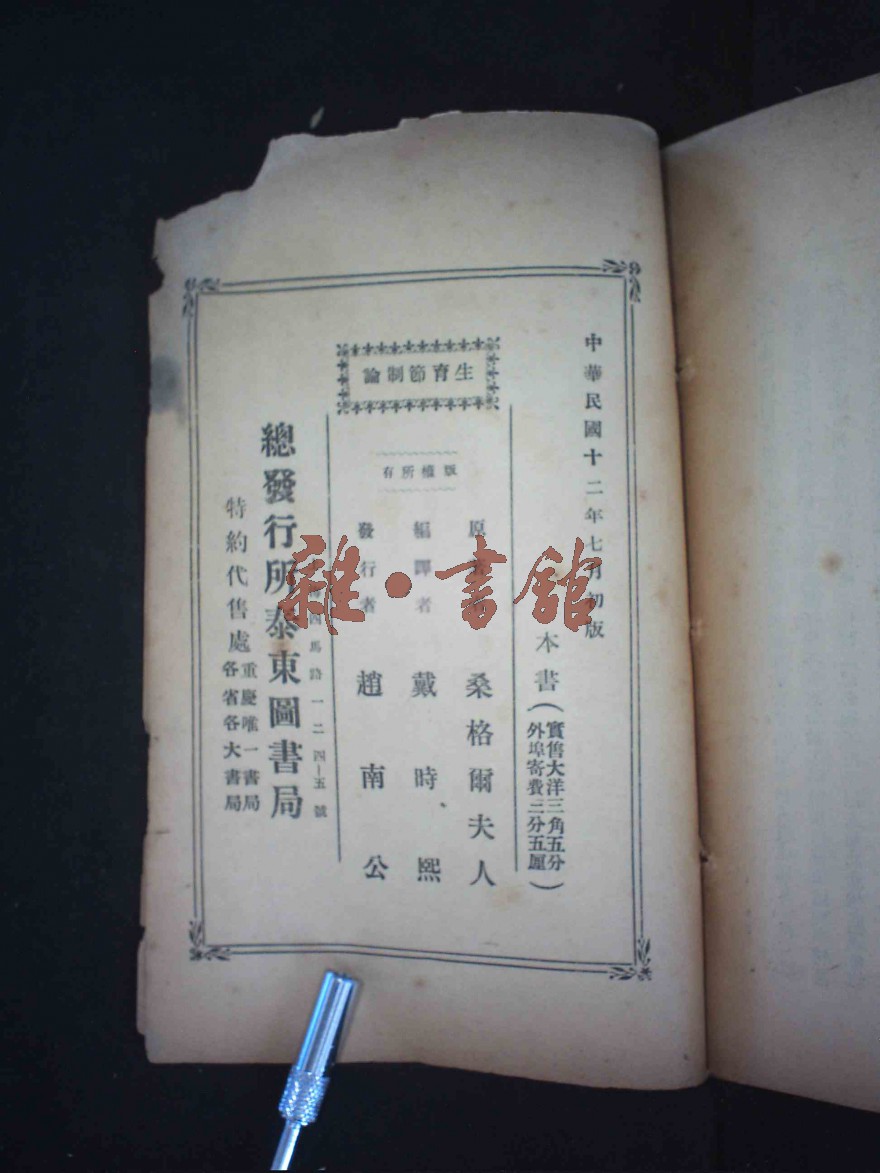 中華民國十二年七月初版
本書(實售大洋三角五分
外埠寄費二分五厘)
生育節制論
版權所有
原 桑格爾夫人
編譯者 戴時熙
發行者 趙南公
四馬路一二四—五號
總發行所泰東圖書局
特約代售處
重慶唯一書局
各省各大書局
雜·書館